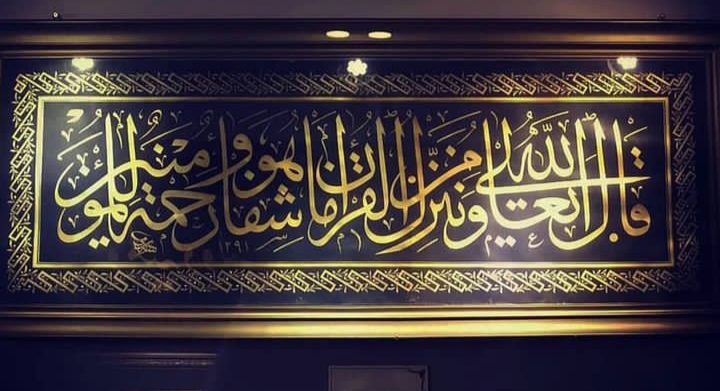 قال الله تعالى وننزل من القرآن ما هو شفاء ورحمة للمؤمنين
١٢٩١